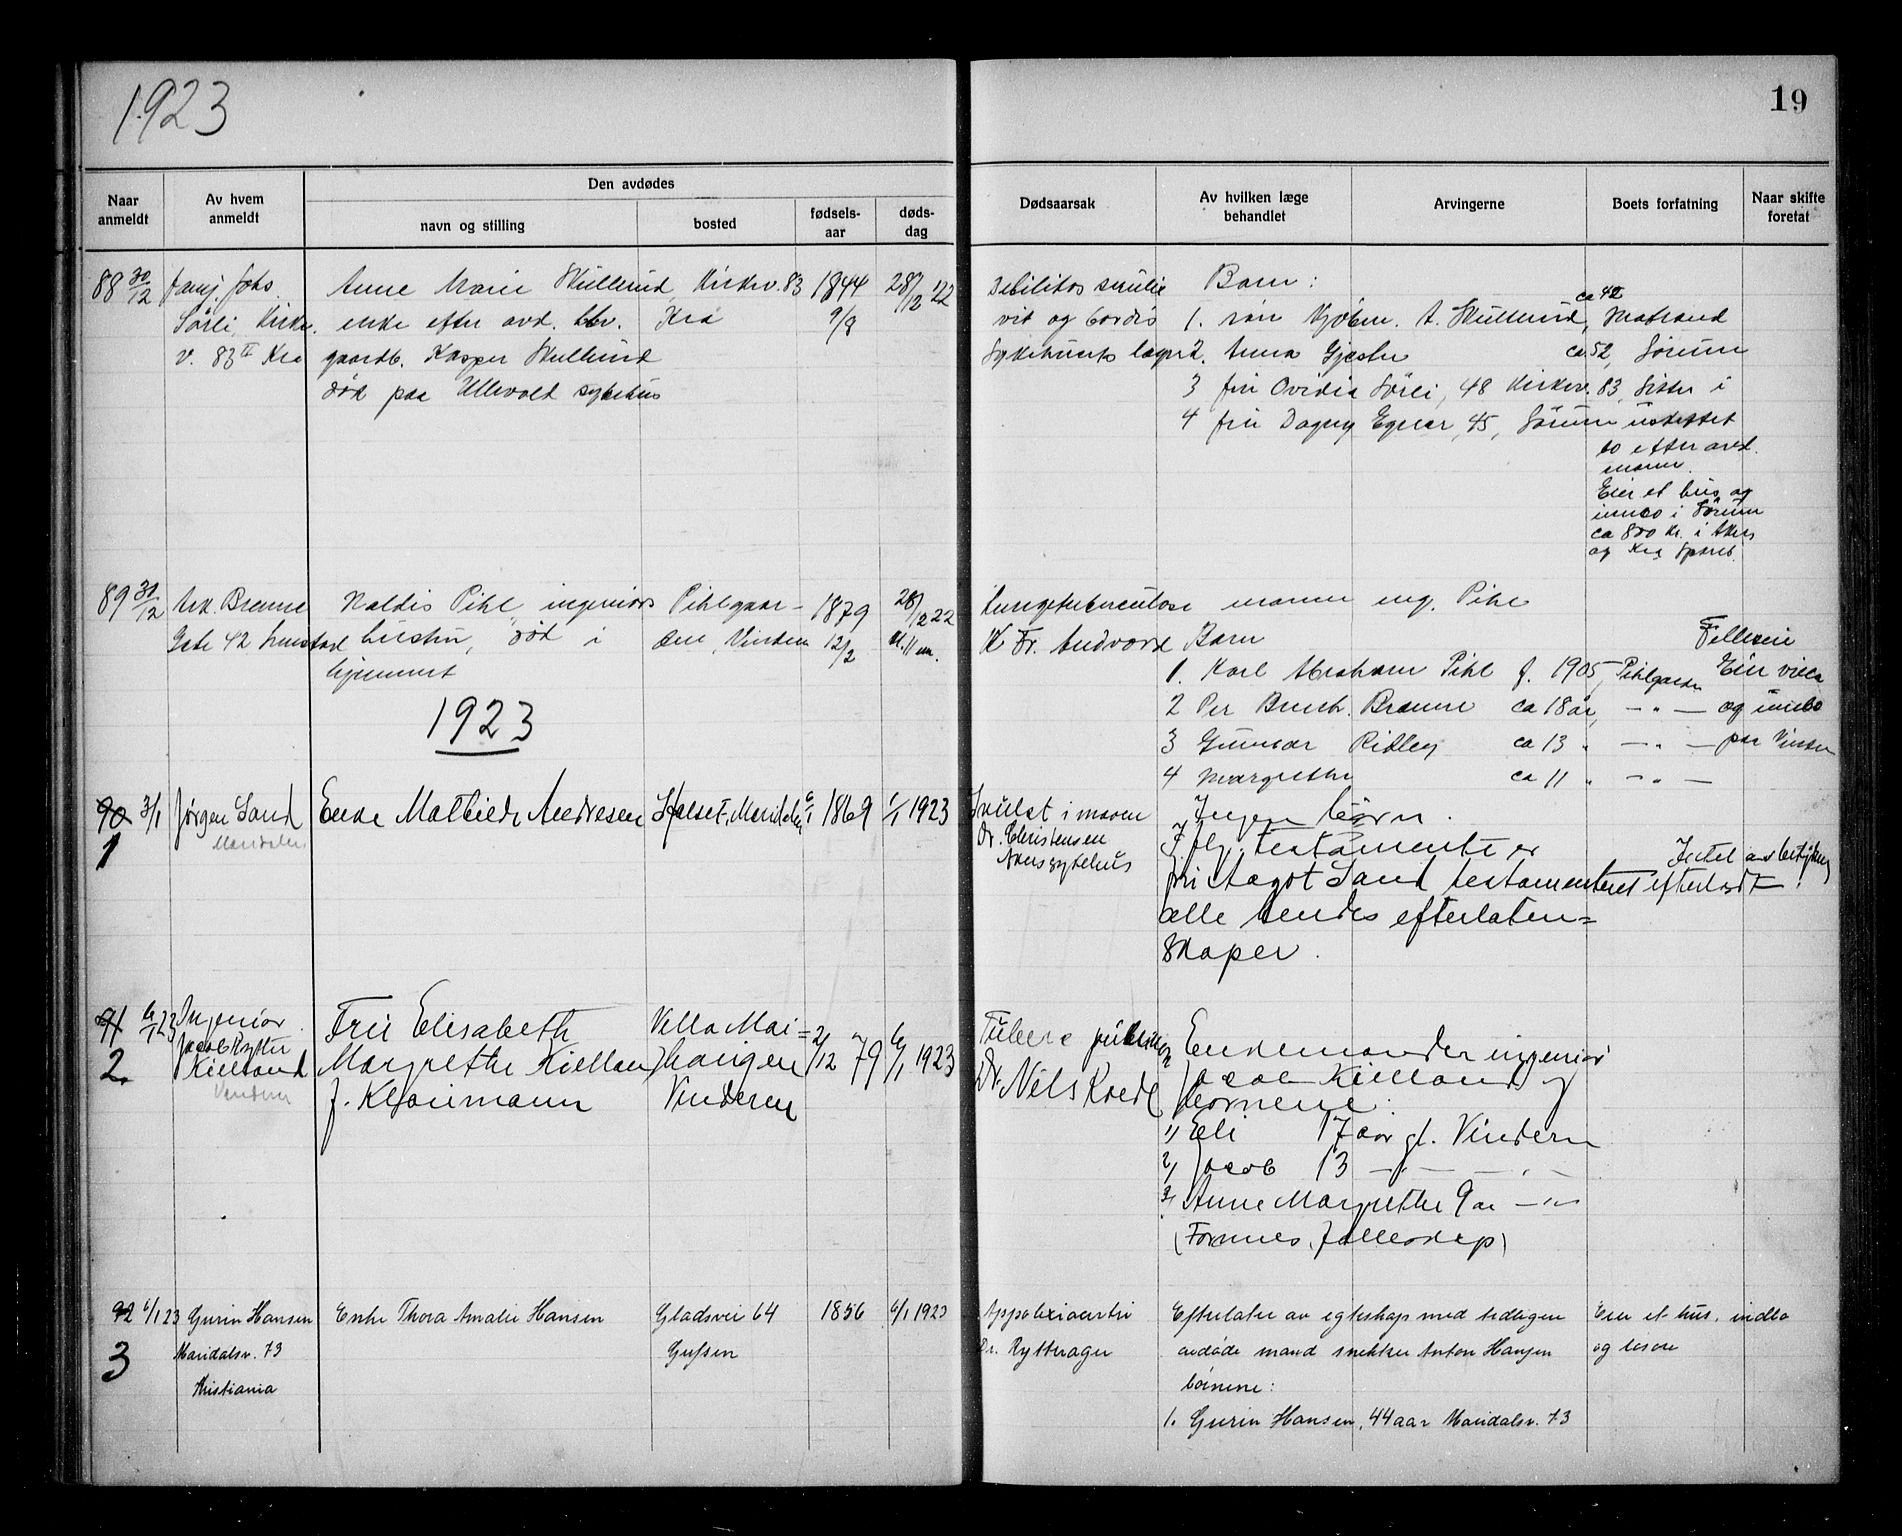 1923
19
Naar anmeldt
Av hvem anmeldt
Den avdødes
navn og stilling
bosted
fødsels-aar
døds-dag
Dødsaarsak
Av hvilken læge behandlet
Arvingerne
Boets forfatning
Naar skifte foretat
88 30/12 Johs. Anne Marie Skullerud Kirkev. 83 1844 28/12 22
Sørli Kirke- enke efter avd. Kra 9/8
v. 83 II Kra gaardb. Kasper Skullerud
død paa Ullevold sykehus
Debilitas senilis
vit og cordis
Sykehusets læger
Barn:
1. A. Skullerud, ca 42 Matrand
2. Anna Gjester ca 52, Sørum
3 fru Ovidia Sørli, 48 Kirkev. 83,
4 fru Dagny Egner, 45, Sørum
Sitter i
uskiftet
bo efter avd.
mann.
Eier et hus og
innbo i Sørum
ca 800 kr. i Akers
og Kra Spareb.
89 30/12 Ark. Brænne Valdis Pihl, ingeniørs Pihlgaar- 1879 28/12 22
Gate 42 hustru, død i den, Vinderen 12/2 kl. 11 em.
hjemmet
Lungetuberculose mann ing. Pihl
Fr. Andvord Barn Felleseie
1. Karl Abraham Pihl f. 1905, Pihlgarden Eier villa
2 Per Brænne ca 18 år, — " — og innbo
3 Gunnar Ridley ca 13 " — " — paa Vinderen
4 Margrethe ca 11 " — " —
1923
90 3/1 Jørgen Sand Enke Mathilde Andresen Maridalen 1869 1/1 1923
1 Maridalen
Svulst i maven
Dr. Christensen
Akers sykehus
Ingen børn.
Iflg. testamente er
fru Aagot Sand testamenteret
alle hendes efterlaten=
skaper.
Intet av betydning
efterladt.
91 6/1 23 Ingeniør Fru Elisabeth Villa Mai= 2/12 79 6/1 1923
2. Jacob Rytter Margrethe Kielland haugen
Kielland f. Klaumann Vinderen
Vinderen
Dr. Nils
Enkemanden ingeniør
Jacob Kielland og
børnene:
1) Eli 17 aar gl. Vindern
2) Jacob 13 — " — — " —
3) Anne Margrethe 9 aar — " —
92 6/1 23 Gurin Hansen Enke Thora Amalie Hansen Gladsvei 64 1856 6/1 1923
3 Maridalsv. 73 Grefsen
Kristiania
Dr. Rytterager
Efterlater av egteskap med tidligere
avdøde mand snekker Anton Hansen
børnene:
1. Gurin Hansen, 44 aar Maridalsv. 73
Eier et hus, indbo
og løsøre